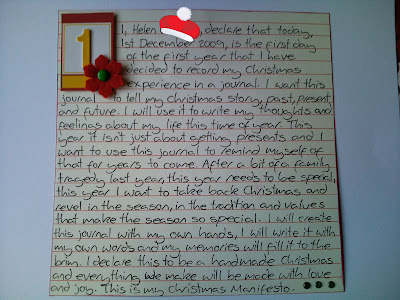 1
I, Helen , declare that today,
1st December 2009, is the first day
of the first year that I have
decided to record my Christmas
experience in a journal. I want this
journal to tell my Christmas story, past, present,
and future. I will use it to write my thoughts and
feelings about my life this time of year. This
year it isn't just about getting presents and I
want to use this journal to remind myself of
that for years to come. After a bit of a family
tragedy last year, this year needs to be special,
this year I want to take back Christmas and
revel in the season, in the tradition and values
that make the season so special. I will create
this journal with my own hands, I will write it with
my own words and my memories will fill it to the
brim. I declare this to be a handmade Christmas
and everything we make will be made with love
and joy. This is my Christmas Manifesto.